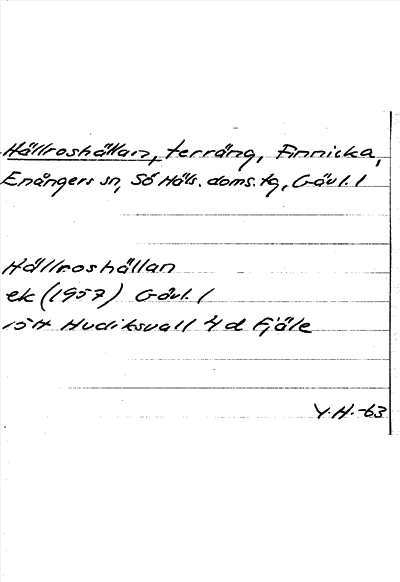 Hällroshällan, terräng, Finnicka,
Enångers sn, Sö Häls. doms. tg, Gävl. l
Hällroshällan
ek (1957) Gävl. l
15H Hudiksvall 4d Fjäle
Y.H.-63